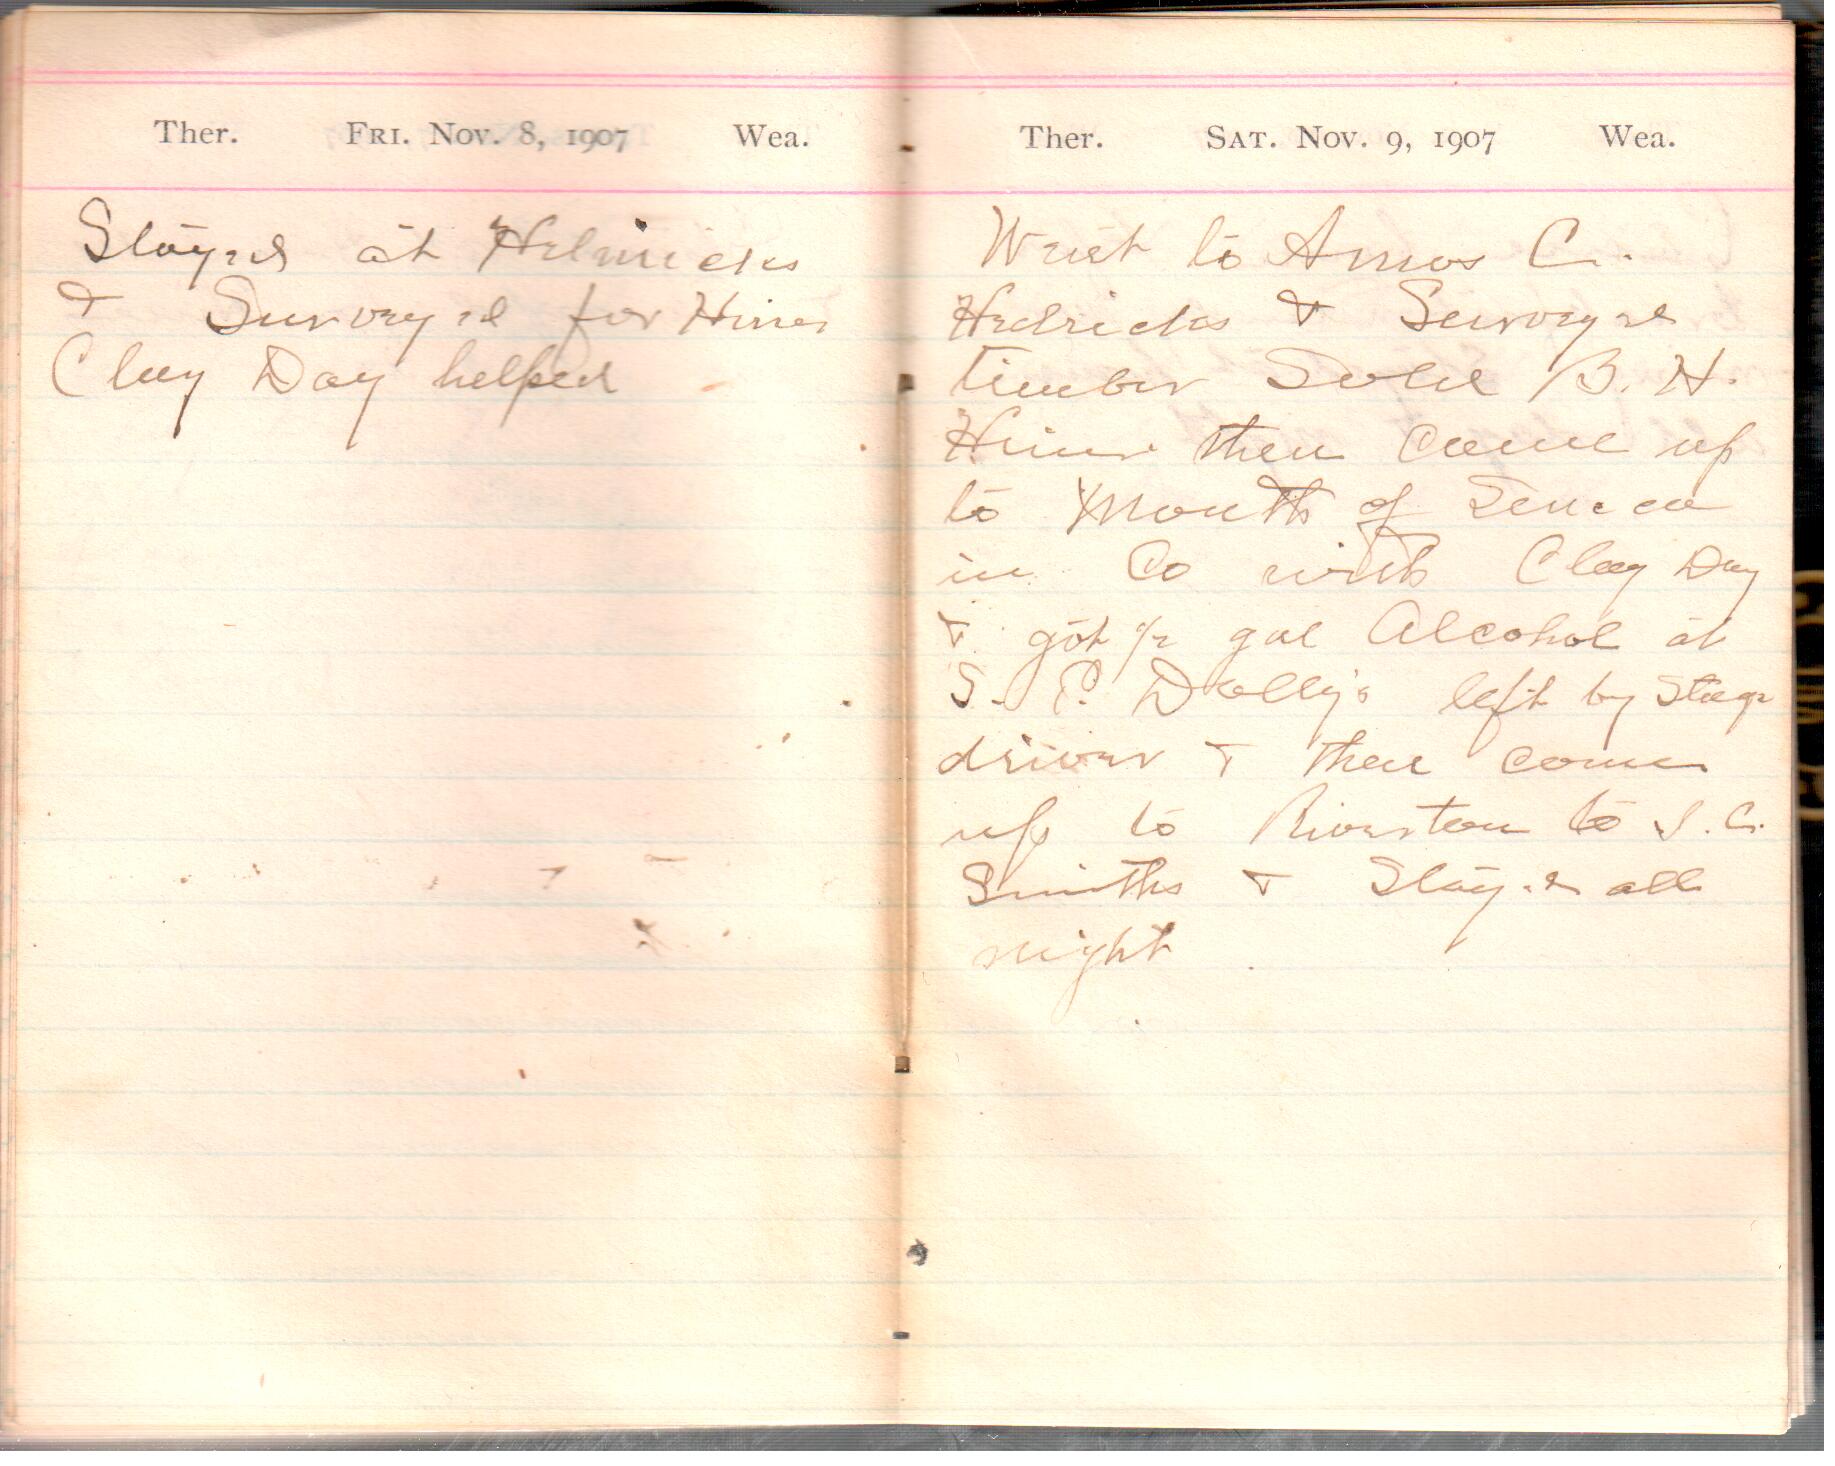 Ther. Fri. Nov. 8, 1907 Wea.
Stayed at Helmicks
& Surveyed for Hiner
Clay Day helped
Ther. Sat. Nov. 9, 1907 Wea.
Went to Amos C.
Hedricks & Surveyed
timber Sold B. H.
Hiner then come up
to Mouth of Seneca
in Co with Clay Day
& got 1/2 gal Alcohol at
S. P. Dolly's left by Stage
driver & then come
up to Riverton to I. C.
Smiths & Stayed all
night